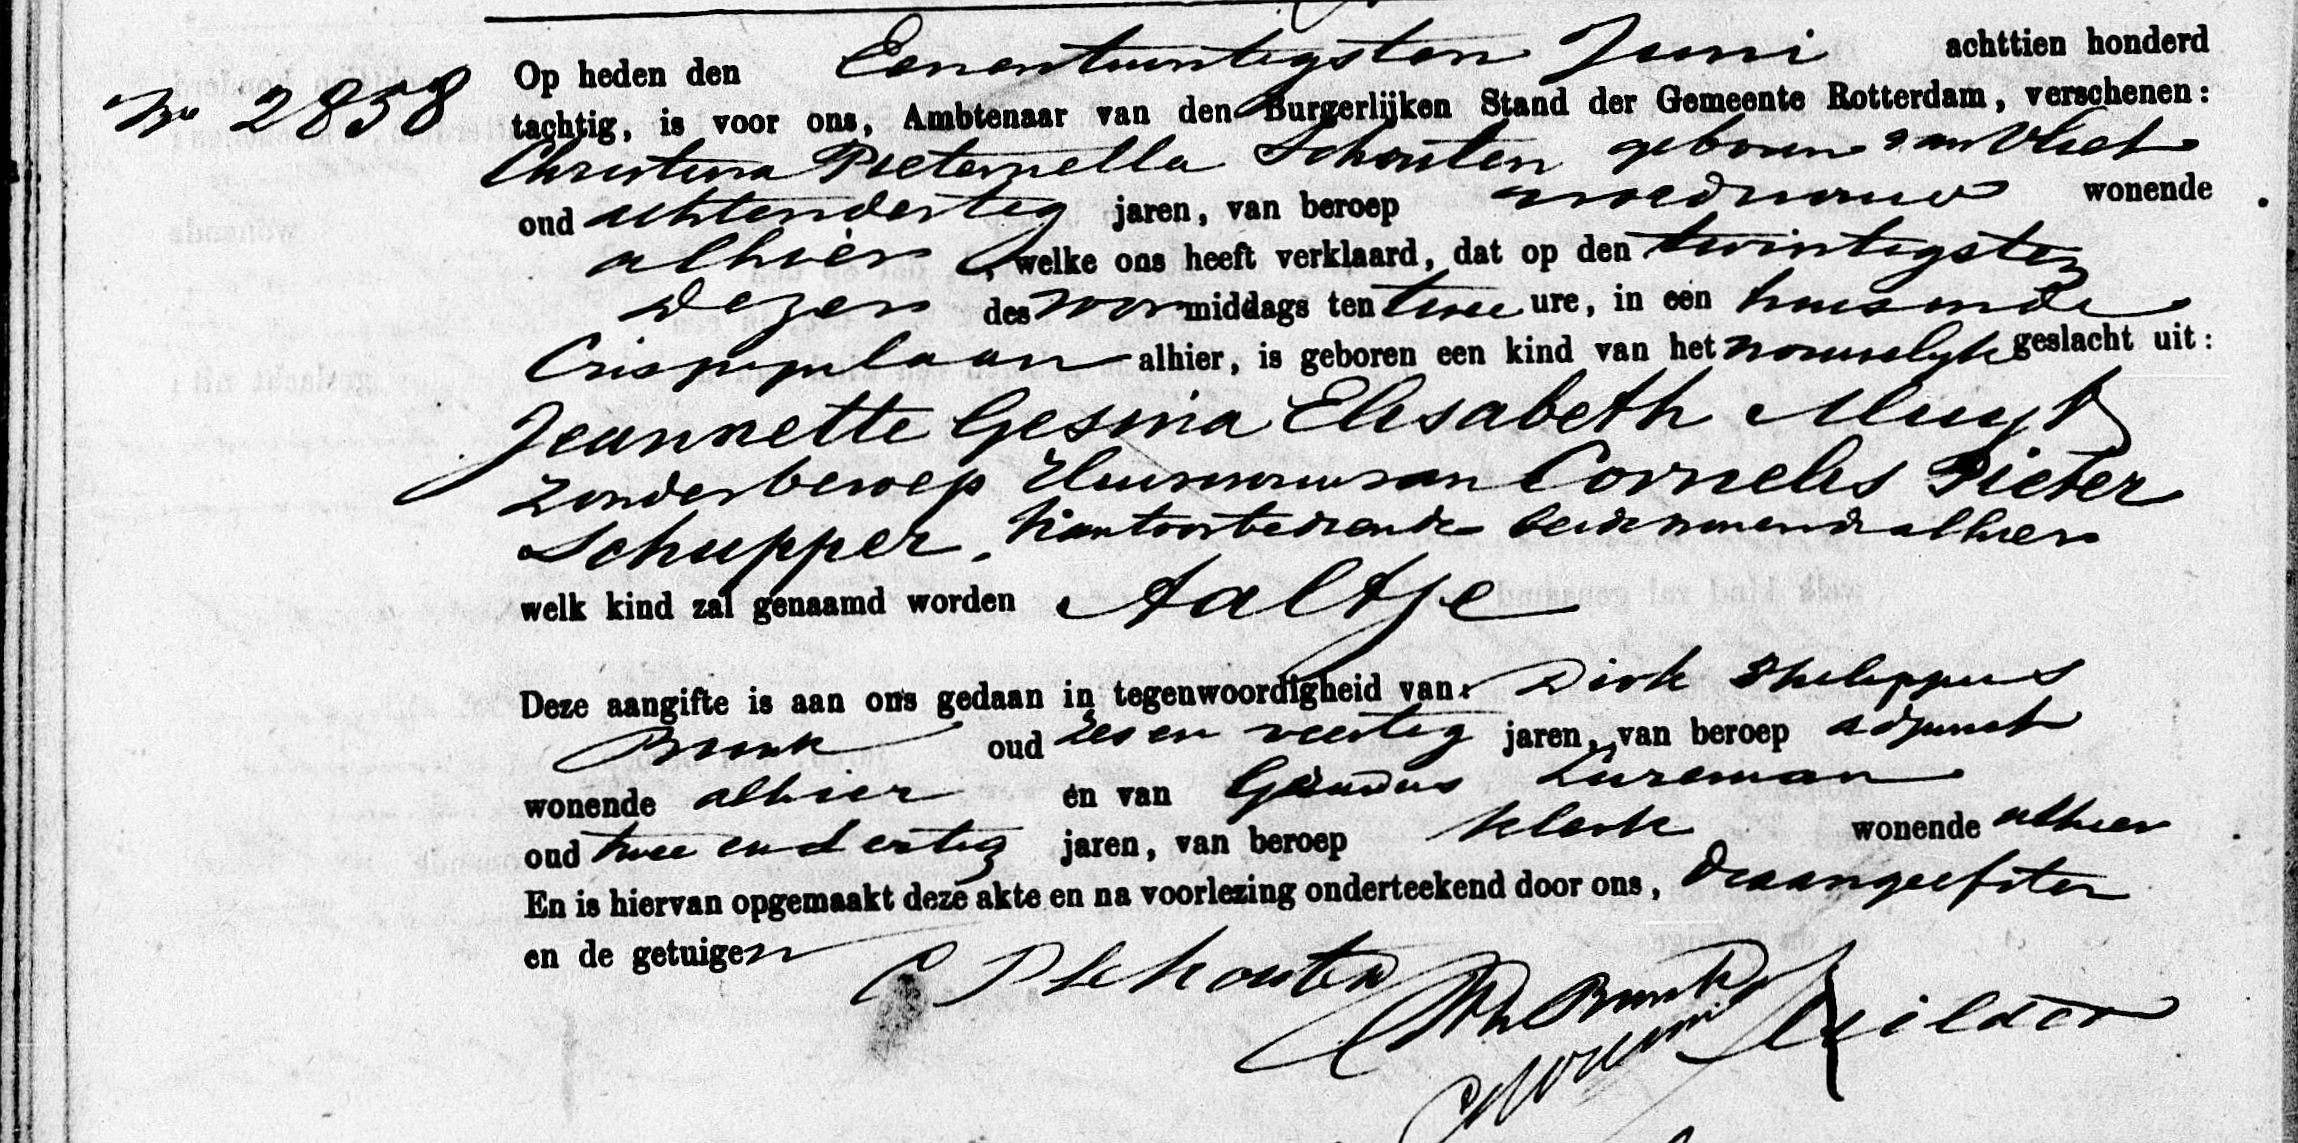 No 2858
Op heden den Eenentwintigsten Juni achttien honderd
tachtig, is voor ons, Ambtenaar van den Burgerlijken Stand der Gemeente Rotterdam, verschenen:
Christina Pieternella Schouten geboren van Vliet
oud achtendertig jaren, van beroep vroedvrouw wonende
alhier, welke ons heeft verklaard, dat op den twintigsten
dezer des voormiddags ten twee ure, in een huis aan de
Crispijnlaan alhier, is geboren een kind van het vrouwelijk geslacht uit:
Jeannette Gesina Elisabeth Muyt
zonder beroep Huisvrouw van Cornelis Pieter
Schupper, kantoorbediende beide wonende alhier
welk kind zal genaamd worden Aaltje
Deze aangifte is aan ons gedaan in tegenwoordigheid van: Dirk Philippus
oud zes en veertig jaren, van beroep adjunct
wonende alhier en van Lureman
oud twee en dertig jaren, van beroep klerk wonende alhier
En is hiervan opgemaakt deze akte en na voorlezing onderteekend door ons, de aangeefster
en de getuigen
C P Schouten